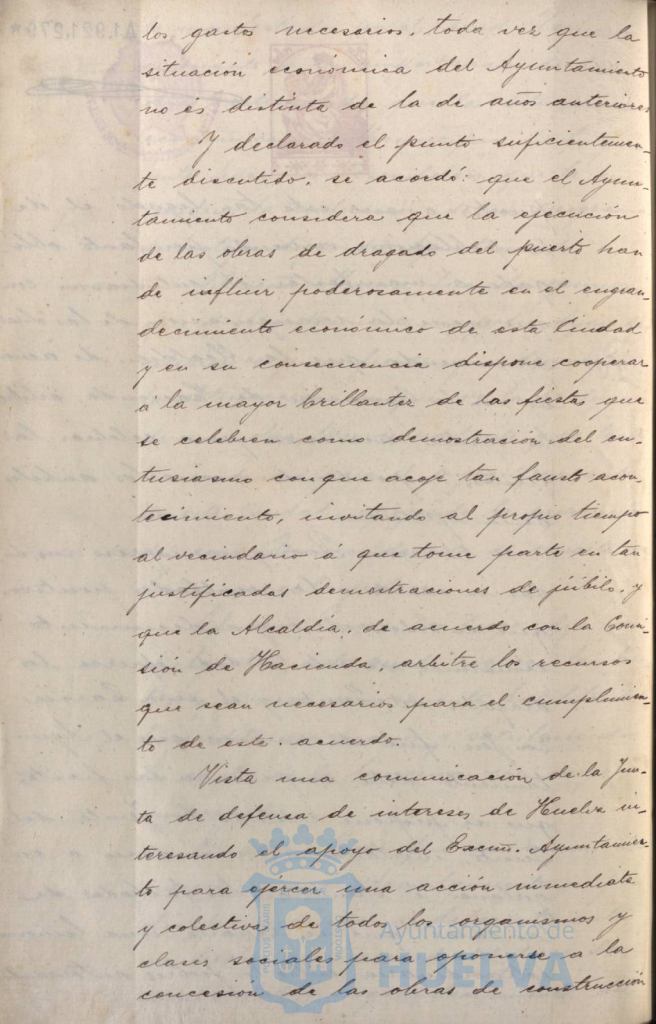 los gastos necesarios, toda vez que la
situación económica del Ayuntamiento
no és distinta de la de años anteriores
Y declarado el punto suficientemen-
te discutido, se acordó: que el Ayun-
tamiento considera que la ejecución
de las obras de dragado del puerto han
de influir poderosamente en el engran-
decimiento económico de esta Ciudad
y en su consecuencia dispone cooperar
á la mayor brillantez de las fiestas que
se celebren como demostración del en-
tusiasmo con que acoje tan fausto acon-
tecimiento, invitando al propio tiempo
al vecindario á que tome parte en tan
justificadas demostraciones de júbilo, y
que la Alcaldía, de acuerdo con la Comi-
sión de Hacienda, arbitre los recursos
que sean necesarios para el cumplimien-
to de este acuerdo.
Vista una comunicación de la Jun-
ta de defensa de intereses de Huelva in-
teresando el apoyo del Excmo. Ayuntamien-
to para ejercer una acción inmediata
y colectiva de todos los organismos y
clases sociales para oponerse a la
concesion de las obras de construcción
Ayuntamiento de
HUELVA